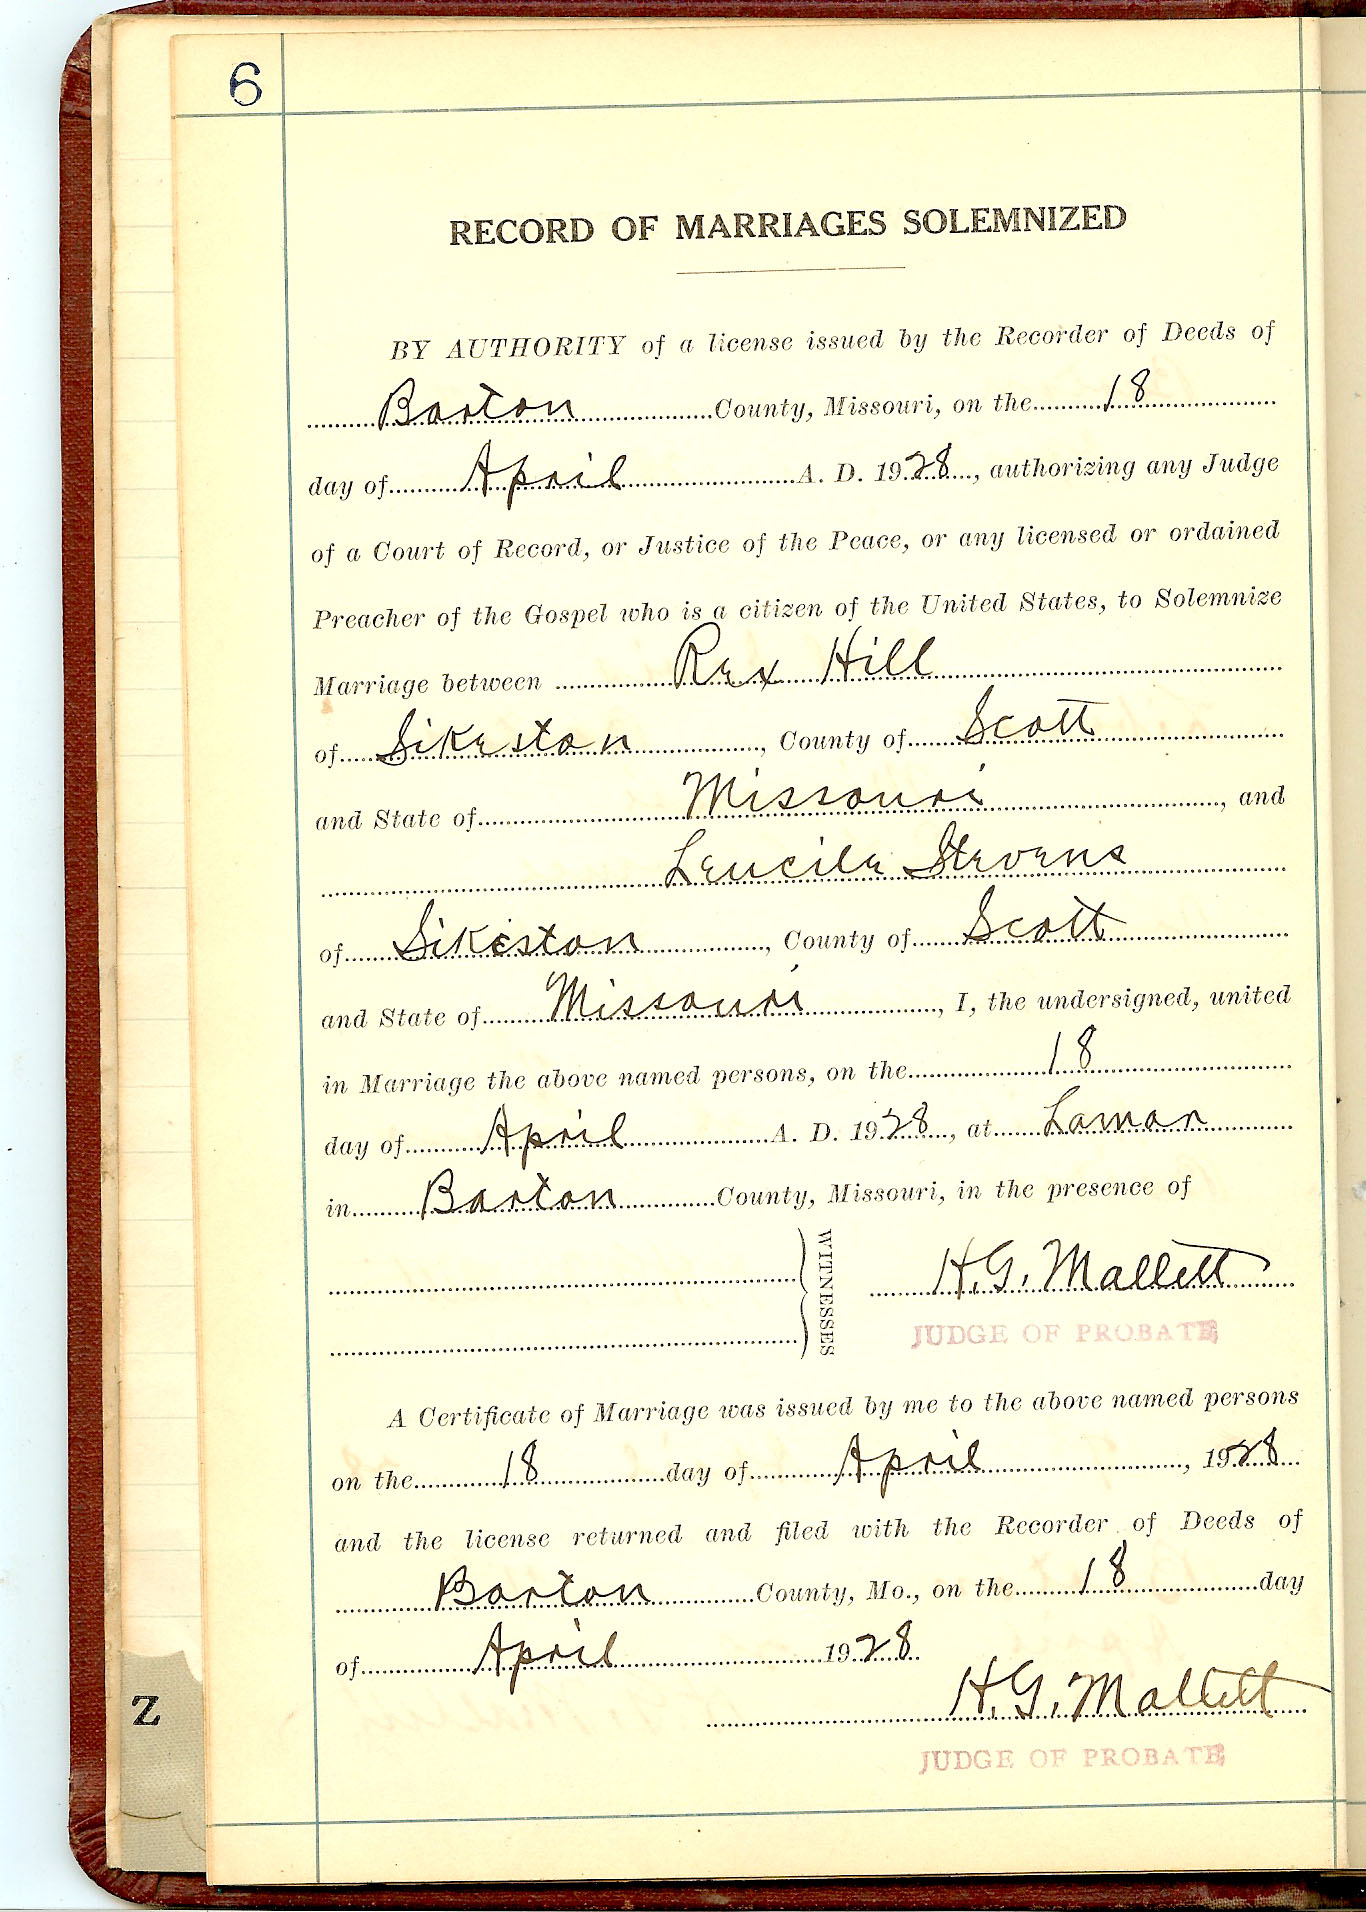 6
RECORD OF MARRIAGES SOLEMNIZED
BY AUTHORITY of a license issued by the Recorder of Deeds of
Barton County, Missouri, on the 18
day of April A. D. 1928, authorizing any Judge
of a Court of Record, or Justice of the Peace, or any licensed or ordained
Preacher of the Gospel who is a citizen of the United States, to Solemnize
Marriage between Rex Hill
of Sikeston, County of Scott
and State of Missouri, and
Leucile Stevens
of Sikeston, County of Scott
and State of Missouri, I, the undersigned, united
in Marriage the above named persons, on the 18
day of April A. D. 1928, at Lamar
in Barton County, Missouri, in the presence of
WITNESSES
H. G. Mallett
JUDGE OF PROBATE
A Certificate of Marriage was issued by me to the above named persons
on the 18 day of April, 1928
and the license returned and filed with the Recorder of Deeds of
Barton County, Mo., on the 18 day
of April 1928.
H. G. Mallett
JUDGE OF PROBATE
Z